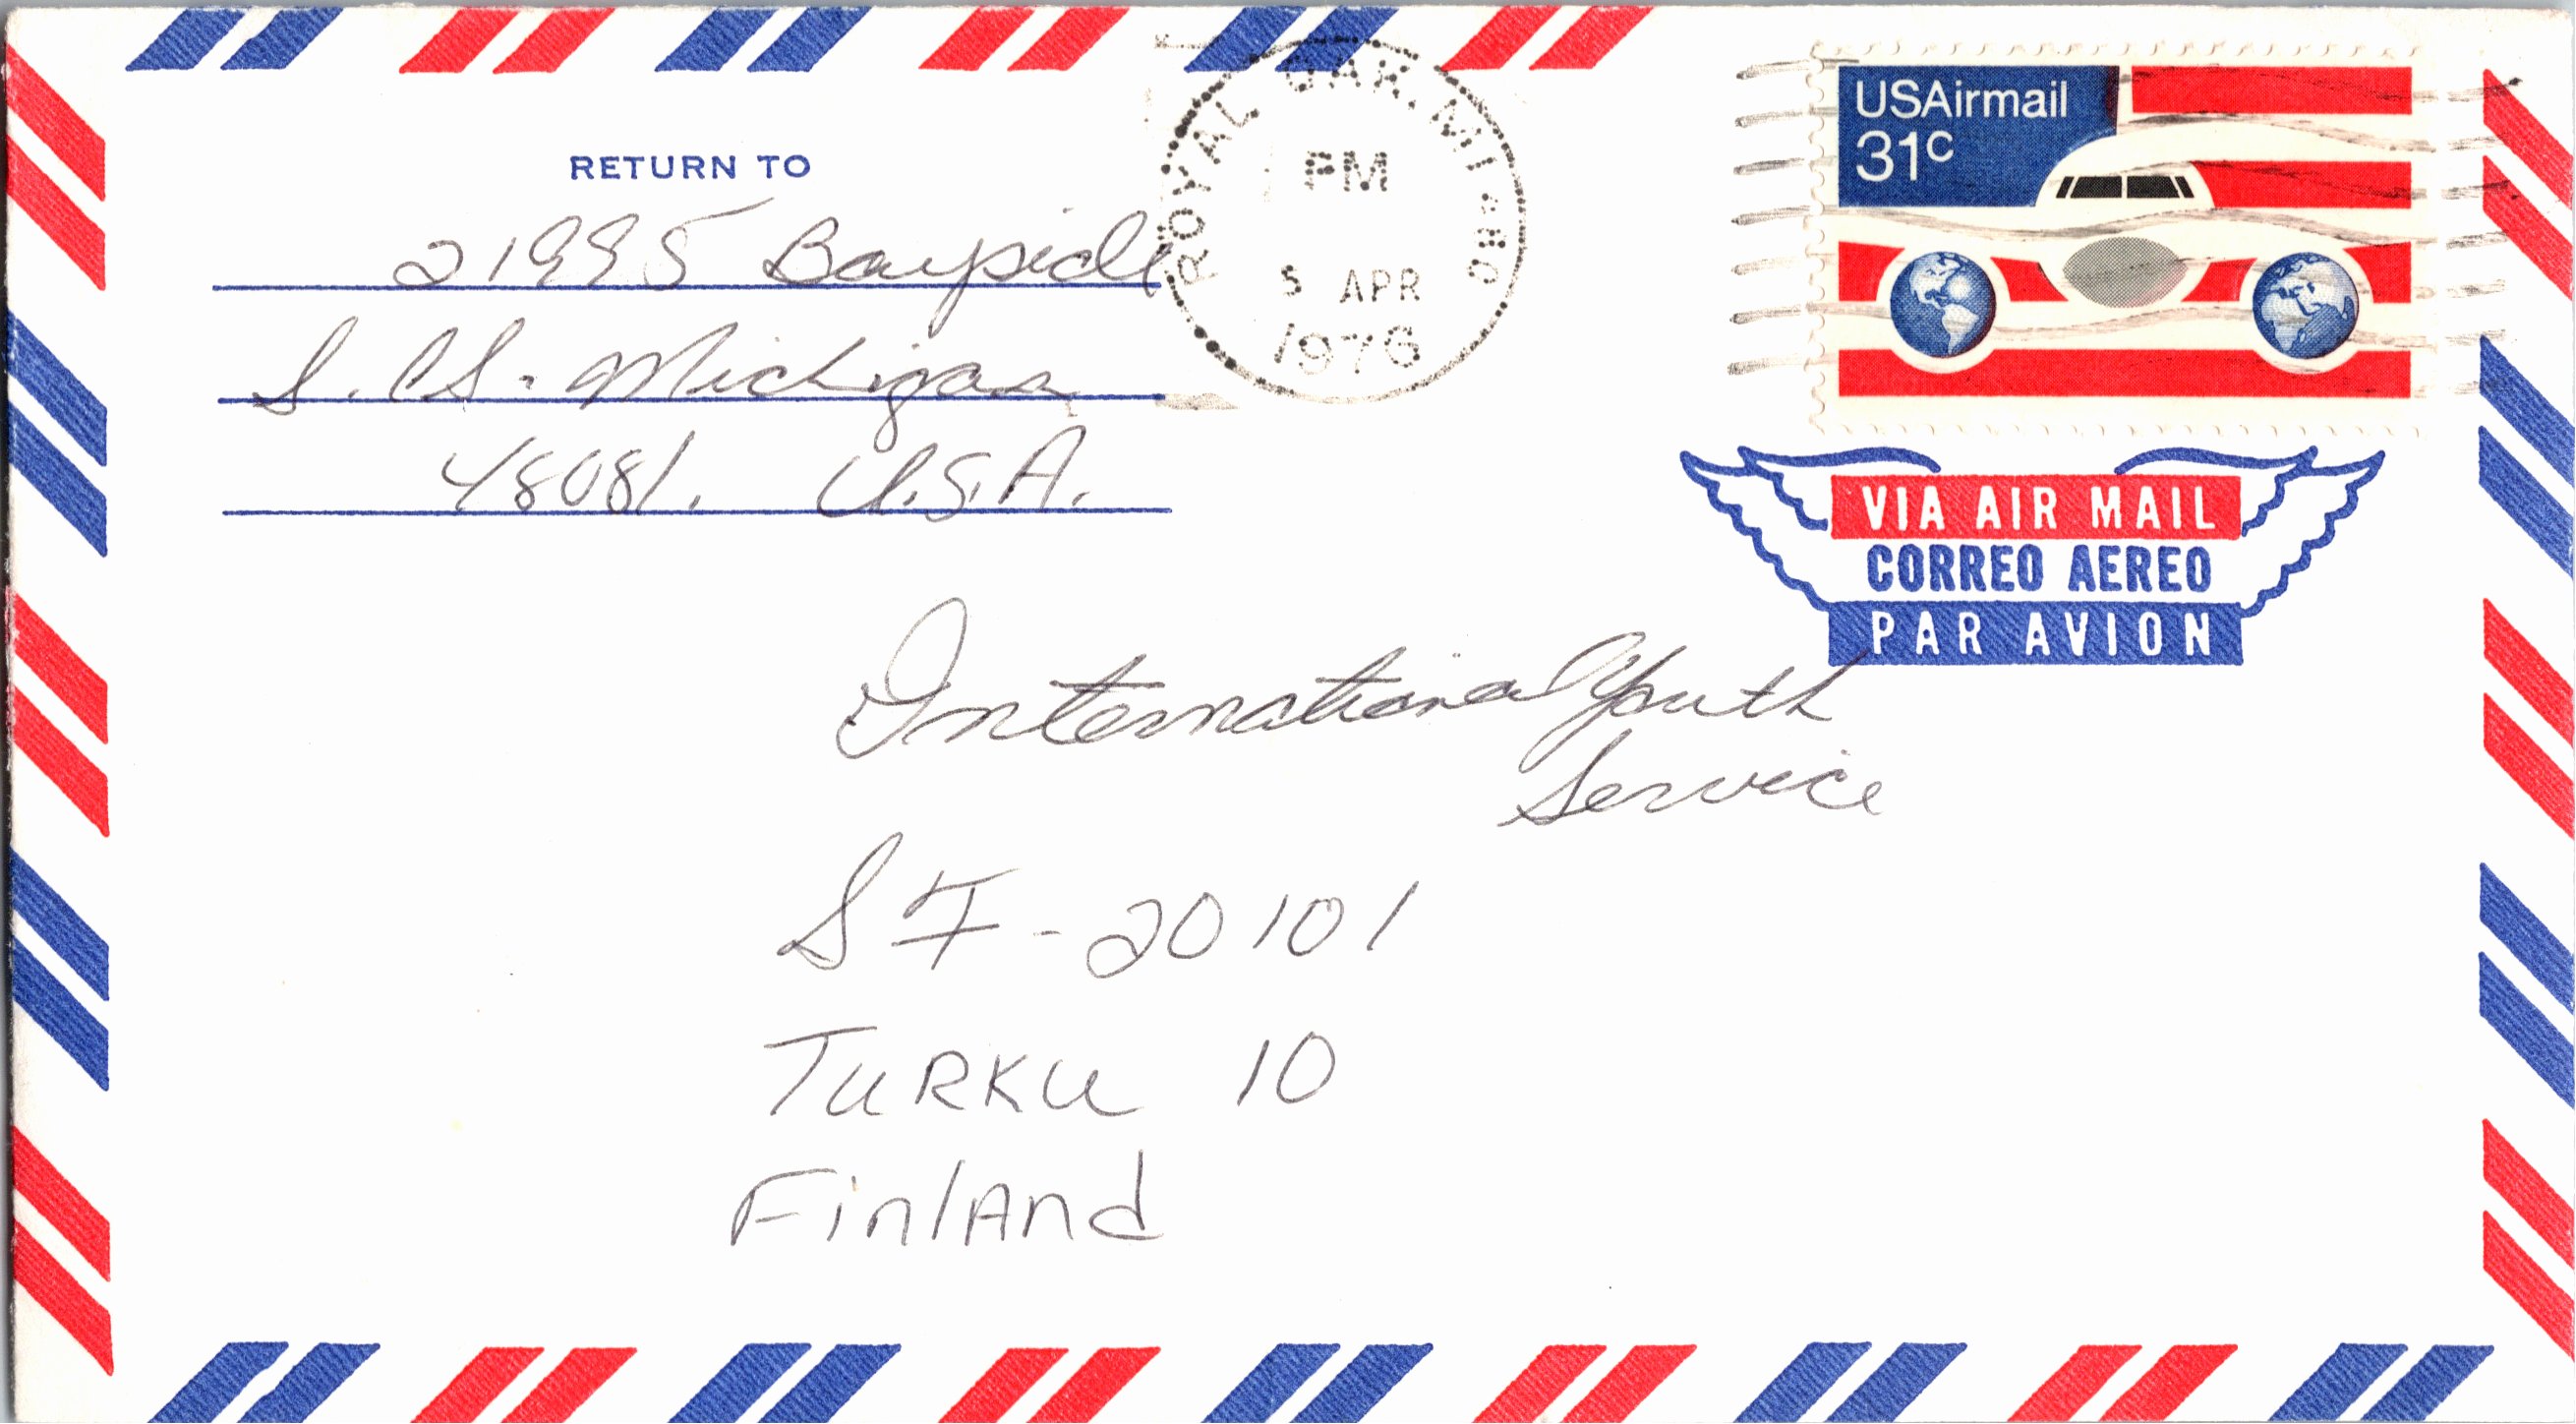 RETURN TO
21995 Bayside
S.C.S. Michigan
48081. U.S.A.
ROYAL OAK, MI 480
PM
5 APR
1976
USAirmail
31c
VIA AIR MAIL
CORREO AEREO
PAR AVION
International Youth
Service
SF-20101
TURKU 10
FinlAnd